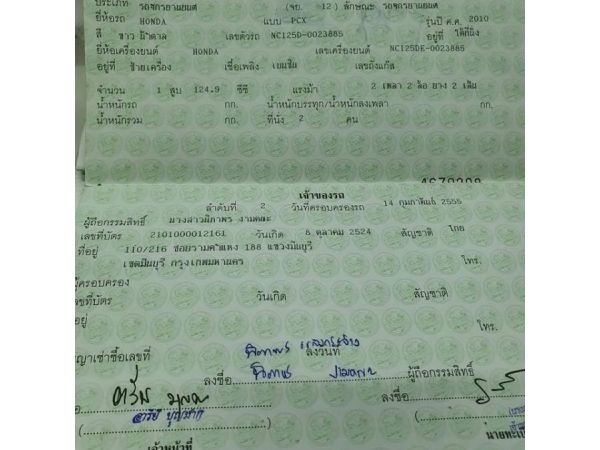 ประเภท รถจักรยานยนต์ (จย. 12) ลักษณะ รถจักรยานยนต์
ยี่ห้อรถ HONDA แบบ PCX รุ่นปี ค.ศ. 2010
สี ขาว น้ำตาล เลขตัวรถ NC125D-0023885 อยู่ที่ ใต้ที่นั่ง
ยี่ห้อเครื่องยนต์ HONDA เลขเครื่องยนต์ NC125DE-0023885
อยู่ที่ ซ้ายเครื่อง เชื้อเพลิง เบนซิน เลขถังแก๊ส
จำนวน 1 สูบ 124.9 ซีซี แรงม้า 2 เพลา 2 ล้อ ยาง 2 เส้น
น้ำหนักรถ กก. น้ำหนักบรรทุก/น้ำหนักลงเพลา กก.
น้ำหนักรวม กก. ที่นั่ง 2 คน
เจ้าของรถ
ลำดับที่ 2 วันที่ครอบครองรถ 14 กุมภาพันธ์ 2555
ผู้ถือกรรมสิทธิ์ นางสาวนิภาพร งามคณะ
เลขที่บัตร 2101000012161 วันเกิด 8 ตุลาคม 2524 สัญชาติ ไทย
ที่อยู่ 110/216 ซอยรามคำแหง 188 แขวงมีนบุรี
เขตมีนบุรี กรุงเทพมหานคร โทร.
ผู้ครอบครอง
เลขที่บัตร วันเกิด สัญชาติ
อยู่ โทร.
ญาเช่าซื้อเลขที่ ลงวันที่
ลงชื่อ ผู้ถือกรรมสิทธิ์
ลงชื่อ
เจ้าหน้าที่ นายทะเบี